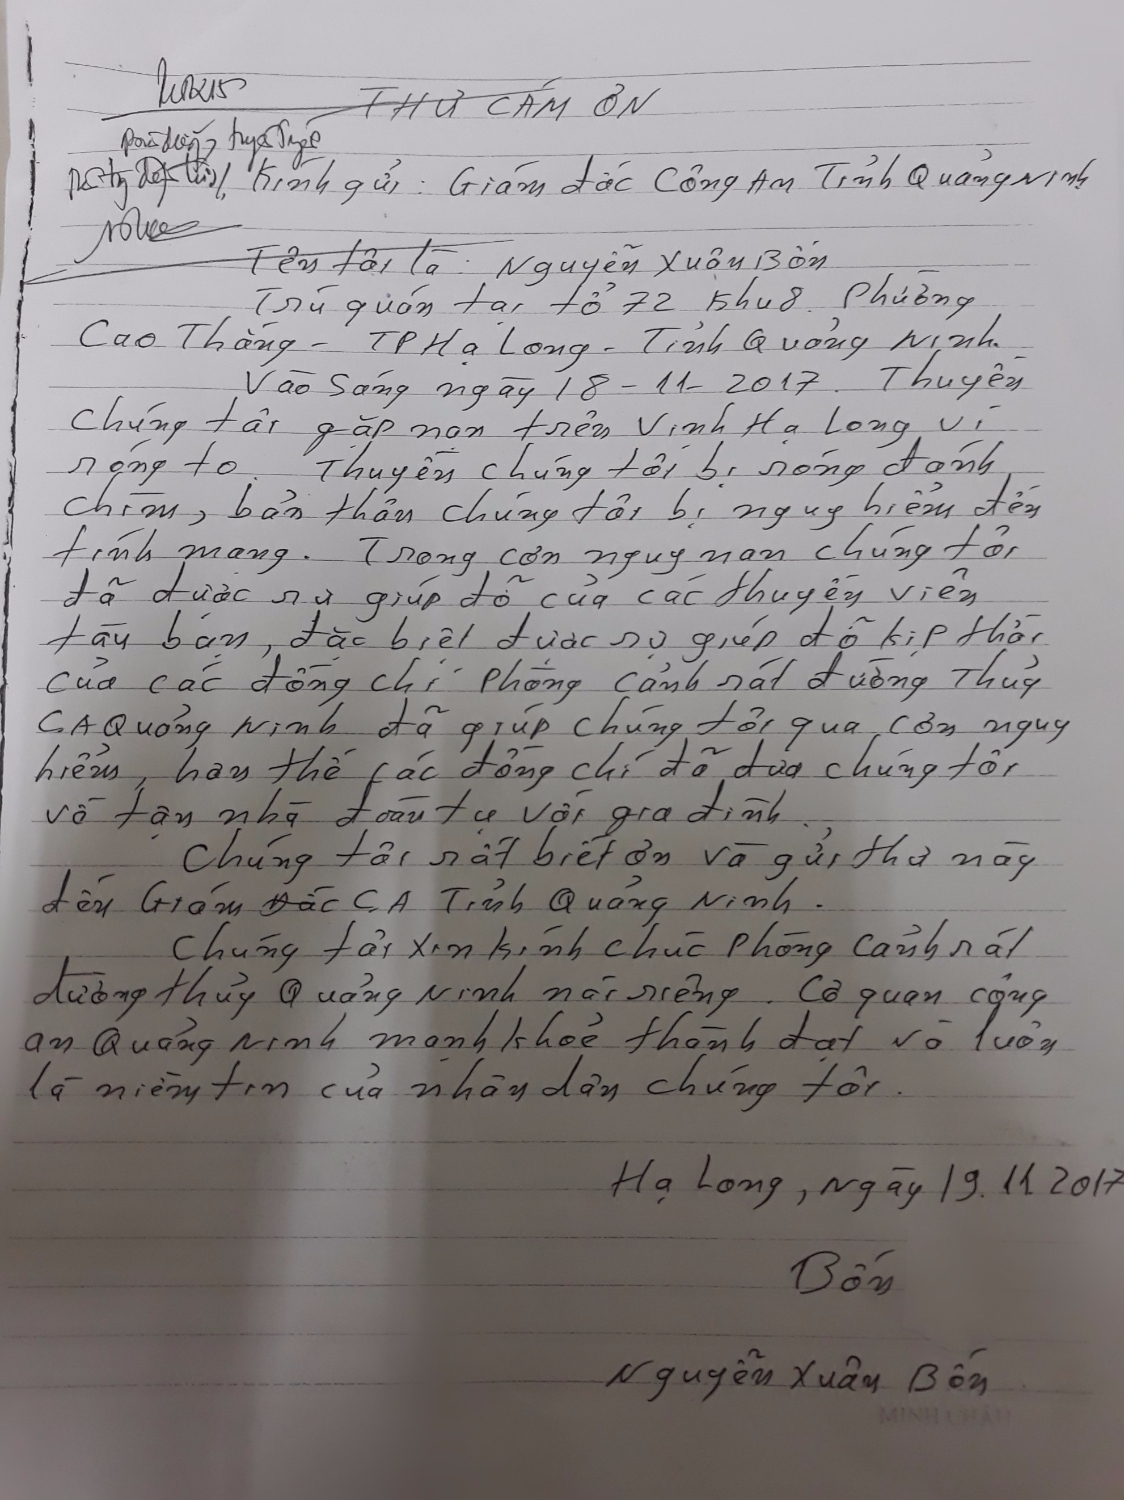 THƯ CÁM ƠN
Kính gửi: Giám đốc Công An Tỉnh Quảng Ninh
Tên tôi là: Nguyễn Xuân Bốn
Trú quán tại tổ 72 Khu 8. Phường
Cao Thắng - TP Hạ Long - Tỉnh Quảng Ninh.
Vào sáng ngày 18-11-2017. Thuyền
chúng tôi gặp nạn trên Vịnh Hạ Long vì
sóng to. Thuyền chúng tôi bị sóng đánh
chìm, bản thân chúng tôi bị nguy hiểm đến
tính mạng. Trong cơn nguy nan chúng tôi
đã được sự giúp đỡ của các thuyền viên
tàu bạn, đặc biệt được sự giúp đỡ kịp thời
của các đồng chí Phòng Cảnh sát đường Thủy
CA Quảng Ninh đã giúp chúng tôi qua cơn nguy
hiểm, hơn thế các đồng chí đã đưa chúng tôi
về tận nhà đoàn tụ với gia đình.
Chúng tôi rất biết ơn và gửi thư này
đến Giám Đốc C.A Tỉnh Quảng Ninh.
Chúng tôi xin kính chúc Phòng Cảnh sát
đường thủy Quảng Ninh nói riêng. Cơ quan công
an Quảng Ninh mạnh khoẻ thành đạt và luôn
là niềm tin của nhân dân chúng tôi.
Hạ Long, Ngày 19.11 2017
Bốn
Nguyễn Xuân Bốn